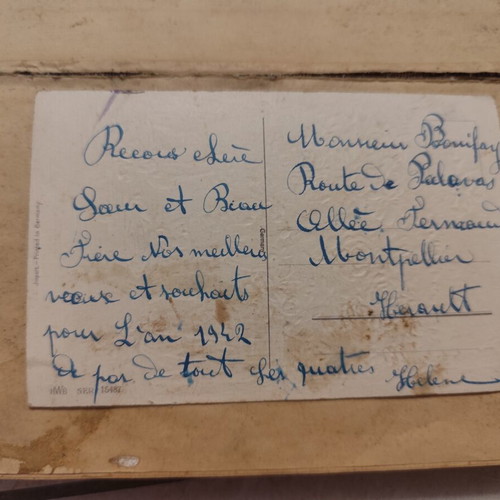 Recois chère
Sœur et Beau
Frère Nos meilleurs
vœux et souhaits
pour L'an 1942
de par de tout les quatres
Helene
Monsieur Bonifay
Route de Palavas
Allée
Montpellier
Herault
Germany